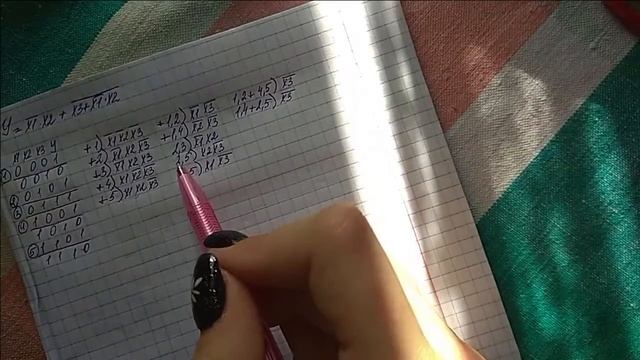 y = x̅1̅·x2 + x̅3̅+̅x̅1̅·x̅2̅
x1 x2 x3 y
1) 0 0 0 1
0 0 1 0
2) 0 1 0 1
3) 0 1 1 1
4) 1 0 0 1
1 0 1 0
5) 1 1 0 1
1 1 1 0
+1) x̅1̅ x̅2̅ x̅3̅
+2) x̅1̅ x2 x̅3̅
+3) x̅1̅ x2 x3
+4) x1 x̅2̅ x̅3̅
+5) x1 x2 x̅3̅
+1,2) x̅1̅ x̅3̅
+1,4) x̅2̅ x̅3̅
2,3) x̅1̅ x2
2,5) x2 x̅3̅
5) x1 x̅3̅
1,2+4,5) x̅3̅
1,4+2,5) x̅3̅